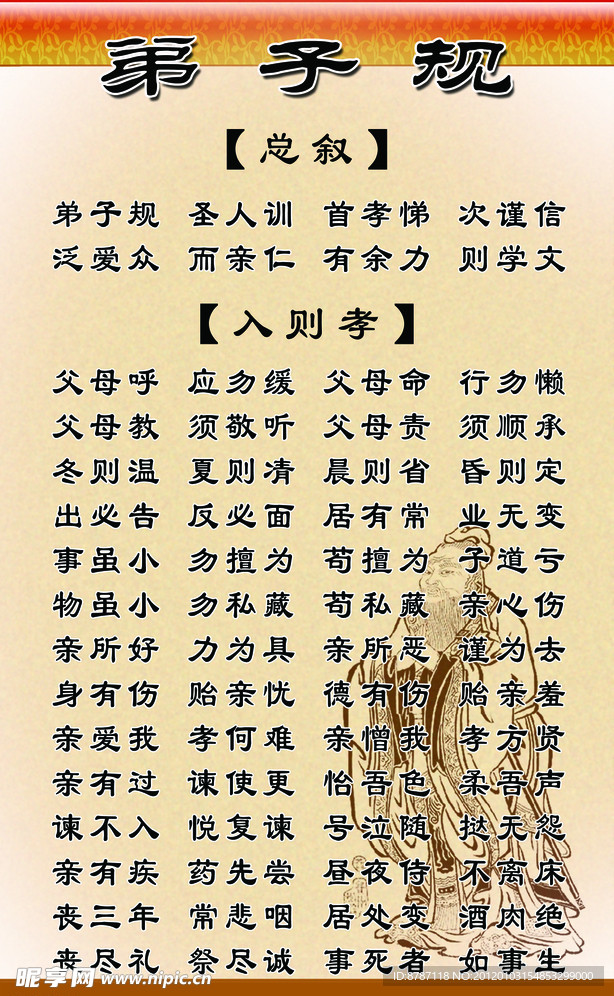 弟子规
【总叙】
弟子规 圣人训 首孝悌 次谨信
泛爱众 而亲仁 有余力 则学文
【入则孝】
父母呼 应勿缓 父母命 行勿懒
父母教 须敬听 父母责 须顺承
冬则温 夏则凊 晨则省 昏则定
出必告 反必面 居有常 业无变
事虽小 勿擅为 苟擅为 子道亏
物虽小 勿私藏 苟私藏 亲心伤
亲所好 力为具 亲所恶 谨为去
身有伤 贻亲忧 德有伤 贻亲羞
亲爱我 孝何难 亲憎我 孝方贤
亲有过 谏使更 怡吾色 柔吾声
谏不入 悦复谏 号泣随 挞无怨
亲有疾 药先尝 昼夜侍 不离床
丧三年 常悲咽 居处变 酒肉绝
丧尽礼 祭尽诚 事死者 如事生
昵享网 www.nipic.cn ID:8787118 NO:20120103154853299000